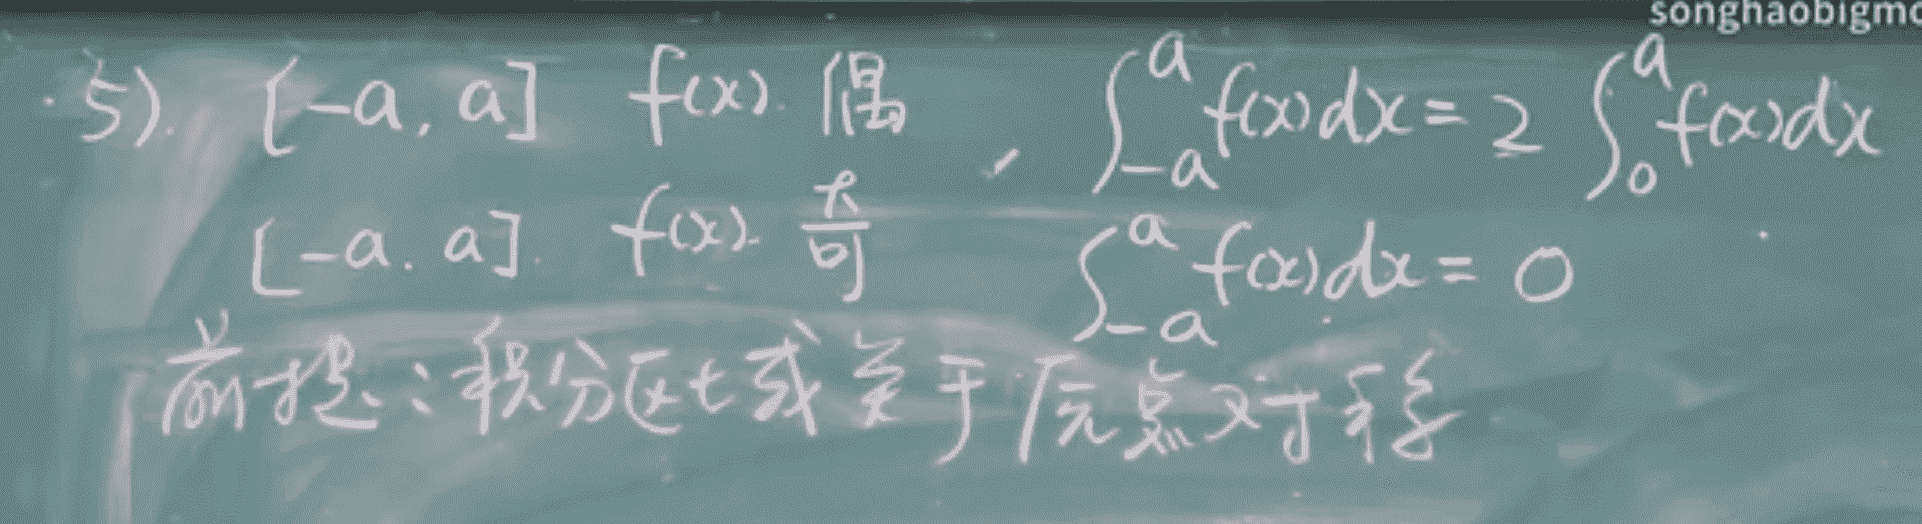 songhaobigmc
5). [-a, a] f(x). 偶, ∫_{-a}^{a} f(x)dx = 2 ∫_{0}^{a} f(x)dx
[-a. a]. f(x). 奇 ∫_{-a}^{a} f(x)dx = 0
前提:积分区域关于原点对称